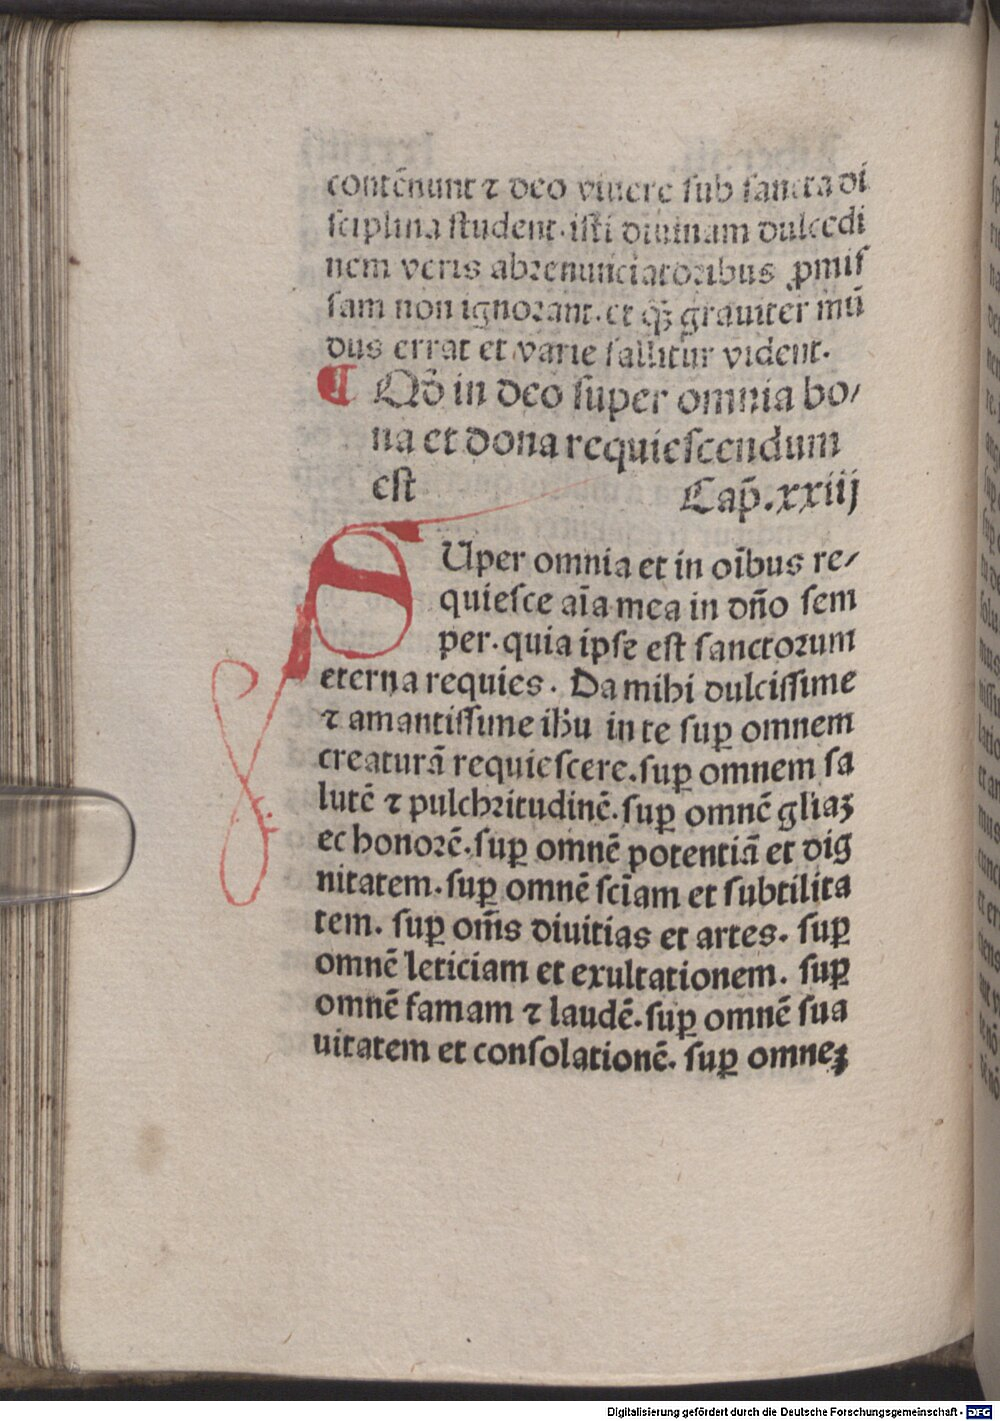 contēnunt ⁊ deo viuere ſub ſancta di
ſciplina ſtudent. iſti diuinam dulcedi
nem veris abꝛenunciatoꝛibus ꝓmiſ
ſam non ignoꝛant. et qꝫ grauiter mū
dus errat et varie fallitur vident.
¶ Qd̄ in deo ſuper omnia bo/
na et dona requieſcendum
eſt Cap̄. xxiij
SUper omnia et in oībus re/
quieſce aīa mea in dn̄o ſem
per. quia ipſe eſt ſanctoꝛum
eterna requies. Da mihi dulciſſime
⁊ amantiſſime ih̄u in te ſuꝑ omnem
creaturā requieſcere. ſuꝑ omnem ſa
lutē ⁊ pulchꝛitudinē. ſuꝑ omnē gl̄iaꝫ
ec honoꝛē. ſuꝑ omnē potentiā et dig
nitatem. ſuꝑ omnē ſcīam et ſubtilita
tem. ſuꝑ om̄s diuitias et artes. ſuꝑ
omnē leticiam et exultationem. ſuꝑ
omnē famam ⁊ laudē. ſuꝑ omnē ſua
uitatem et conſolationē. ſuꝑ omneꝫ
Digitalisierung gefördert durch die Deutsche Forschungsgemeinschaft - DFG